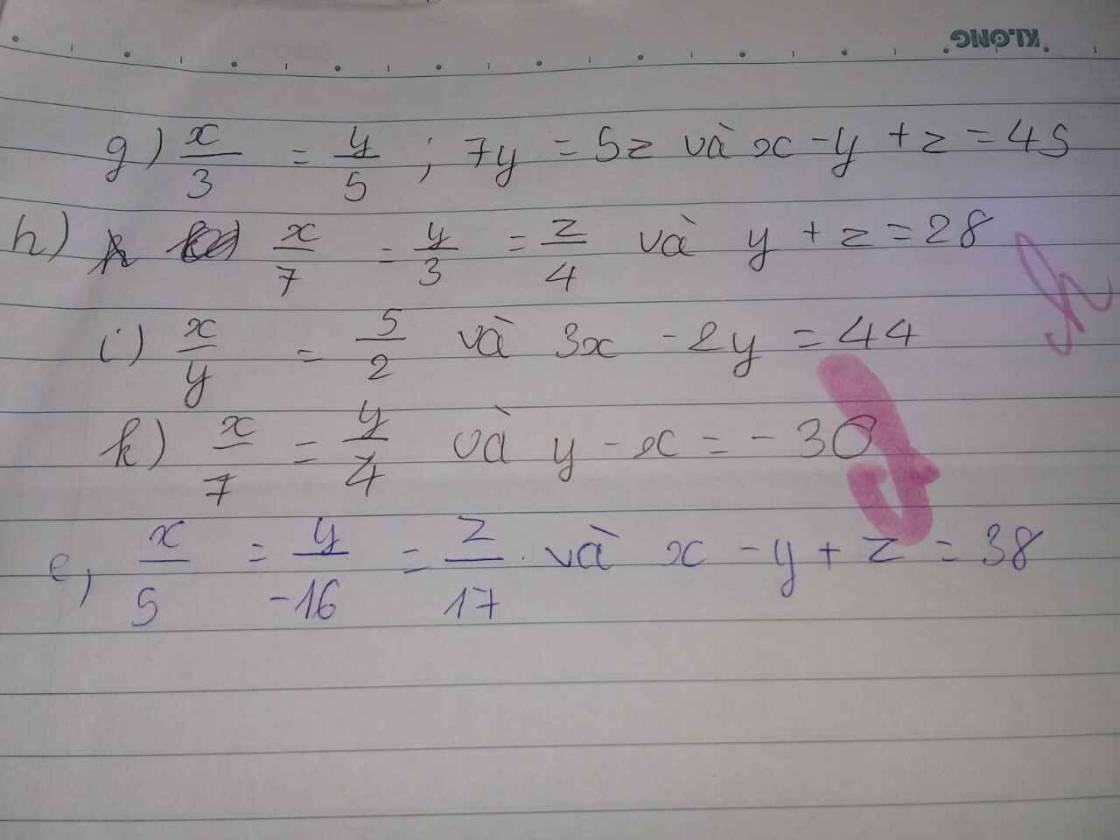 KLONG
g) x/3 = y/5 ; 7y = 5z và x - y + z = 45
h) x/7 = y/3 = z/4 và y + z = 28
i) x/y = 5/2 và 3x - 2y = 44
k) x/7 = y/4 và y - x = - 30
e, x/5 = y/-16 = z/17 . và x - y + z = 38